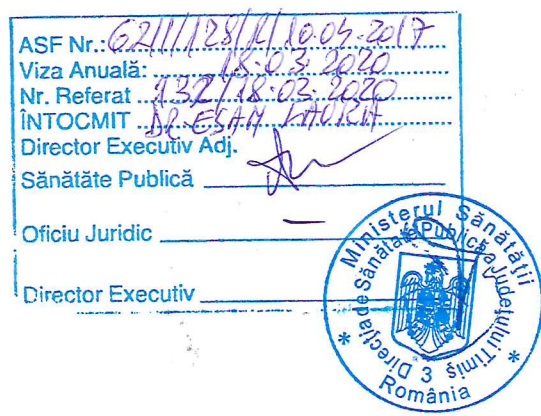 ASF Nr.: 6211/128/R/10.04.2017
Viza Anuală: 18.03.2020
Nr. Referat 132/18.03.2020
ÎNTOCMIT DR. ESAM LAURA
Director Executiv Adj.
Sănătăte Publică
Oficiu Juridic
Director Executiv
Ministerul Sănătății
Direcția de Sănătate Publică a Județului Timiș
3
România